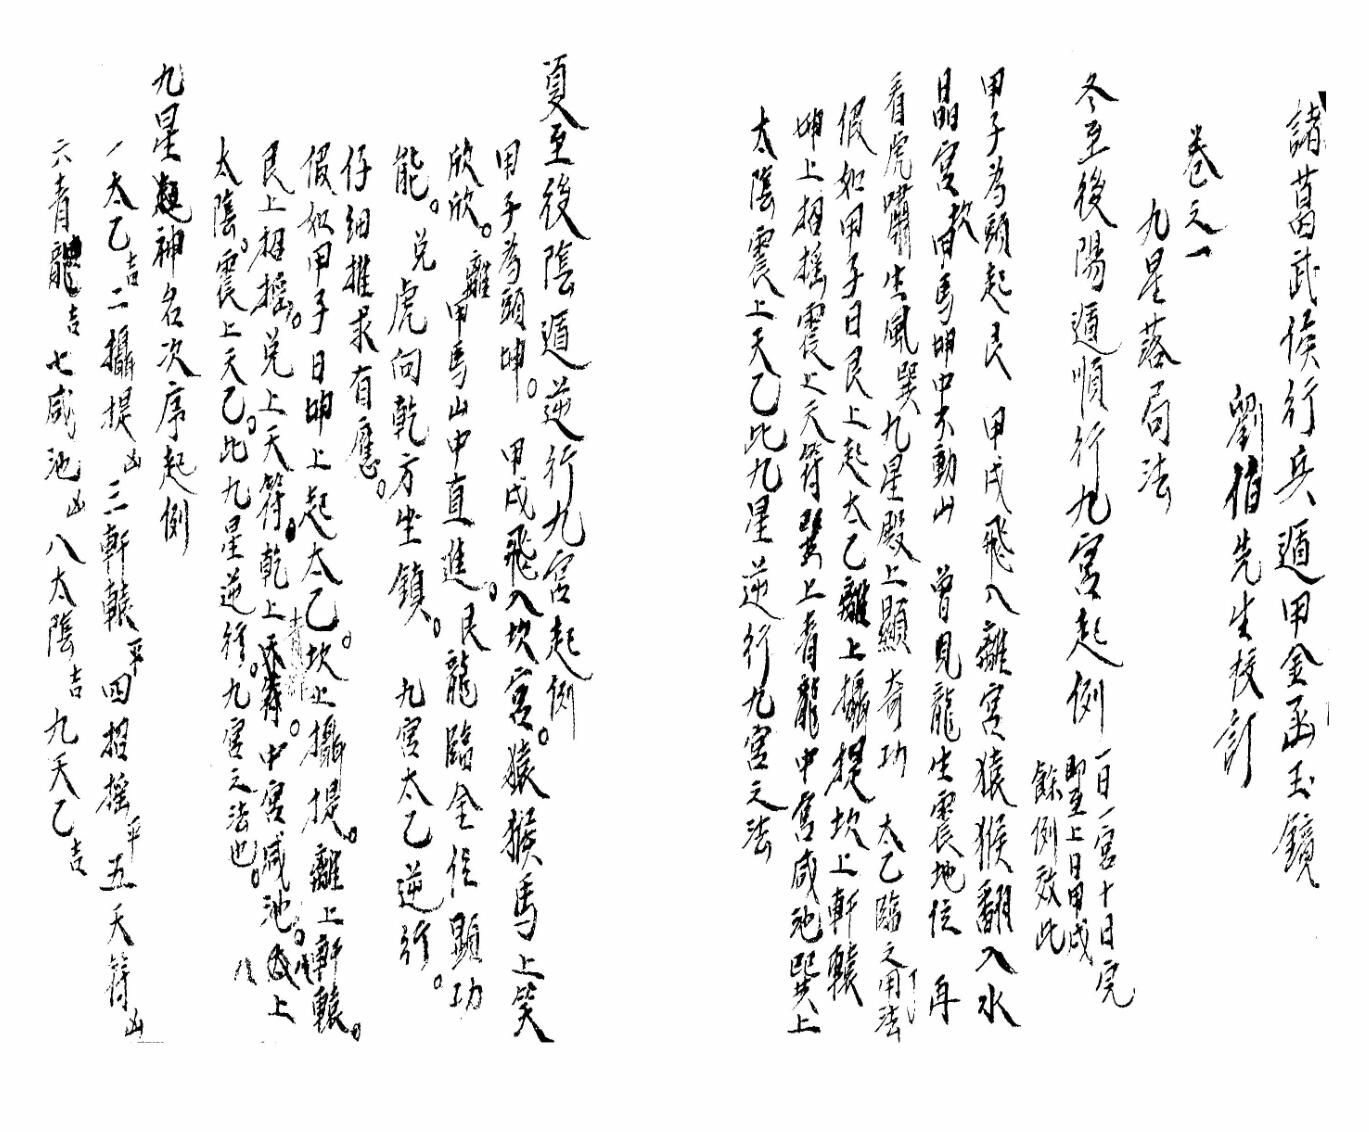 諸葛武侯行兵遁甲金函玉鏡
劉伯先生校訂
卷之一
九星落局法
冬至後陽遁順行九宮起例
一日一宮十日完
即至上日甲戌
餘例效此
甲子為頭起艮 甲戌飛入離宮猿猴翻入水
晶宮 坎 甲馬坤中不動山 曾見龍生震地位 再
看虎嘯生風巽 九星殿上顯奇功 太乙臨之用法
假如甲子日艮上起太乙離上攝提坎上軒轅
坤上招搖震上天符巽上青龍中宮咸池 上
太陰震上天乙此九星逆行九宮之法
夏至後陰遁逆行九宮起例
甲子為頭坤。甲戌飛入坎宮。猿猴馬上笑
欣欣。離 甲馬山中直進。艮龍臨金位顯功
能。兑虎向乾方坐鎮。九宮太乙逆行。
仔細推求有應。
假如甲子日坤上起太乙。坎上攝提。離上軒轅。
艮上招搖。兑上天符。乾上青龍。中宮咸池。 上
太陰。震上天乙。此九星逆行。九宮之法也。
九星 神名次序起例
一太乙吉 二攝提凶 三軒轅平 四招搖平 五天符凶
六青龍吉 七咸池凶 八太陰吉 九天乙吉